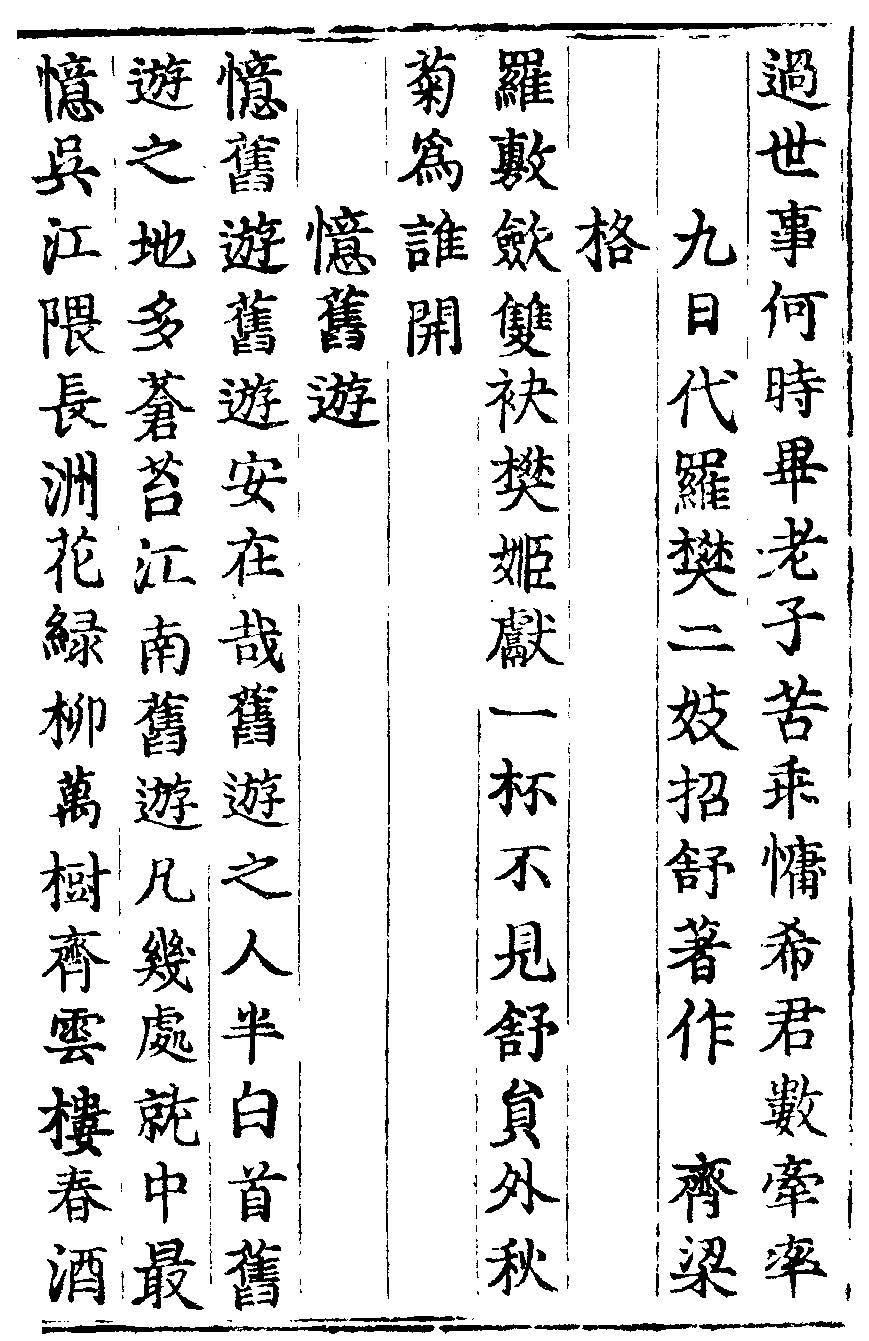 過世事何時畢老子苦乖慵希君數牽率
九日代羅樊二妓招舒著作　齊梁
格
羅敷歛雙袂樊姬獻一杯不見舒貟外秋
菊爲誰開
憶舊遊
憶舊遊舊遊安在哉舊遊之人半白首舊
遊之地多蒼苔江南舊遊凡幾處就中最
憶吳江隈長洲花緑柳萬樹齊雲樓春酒